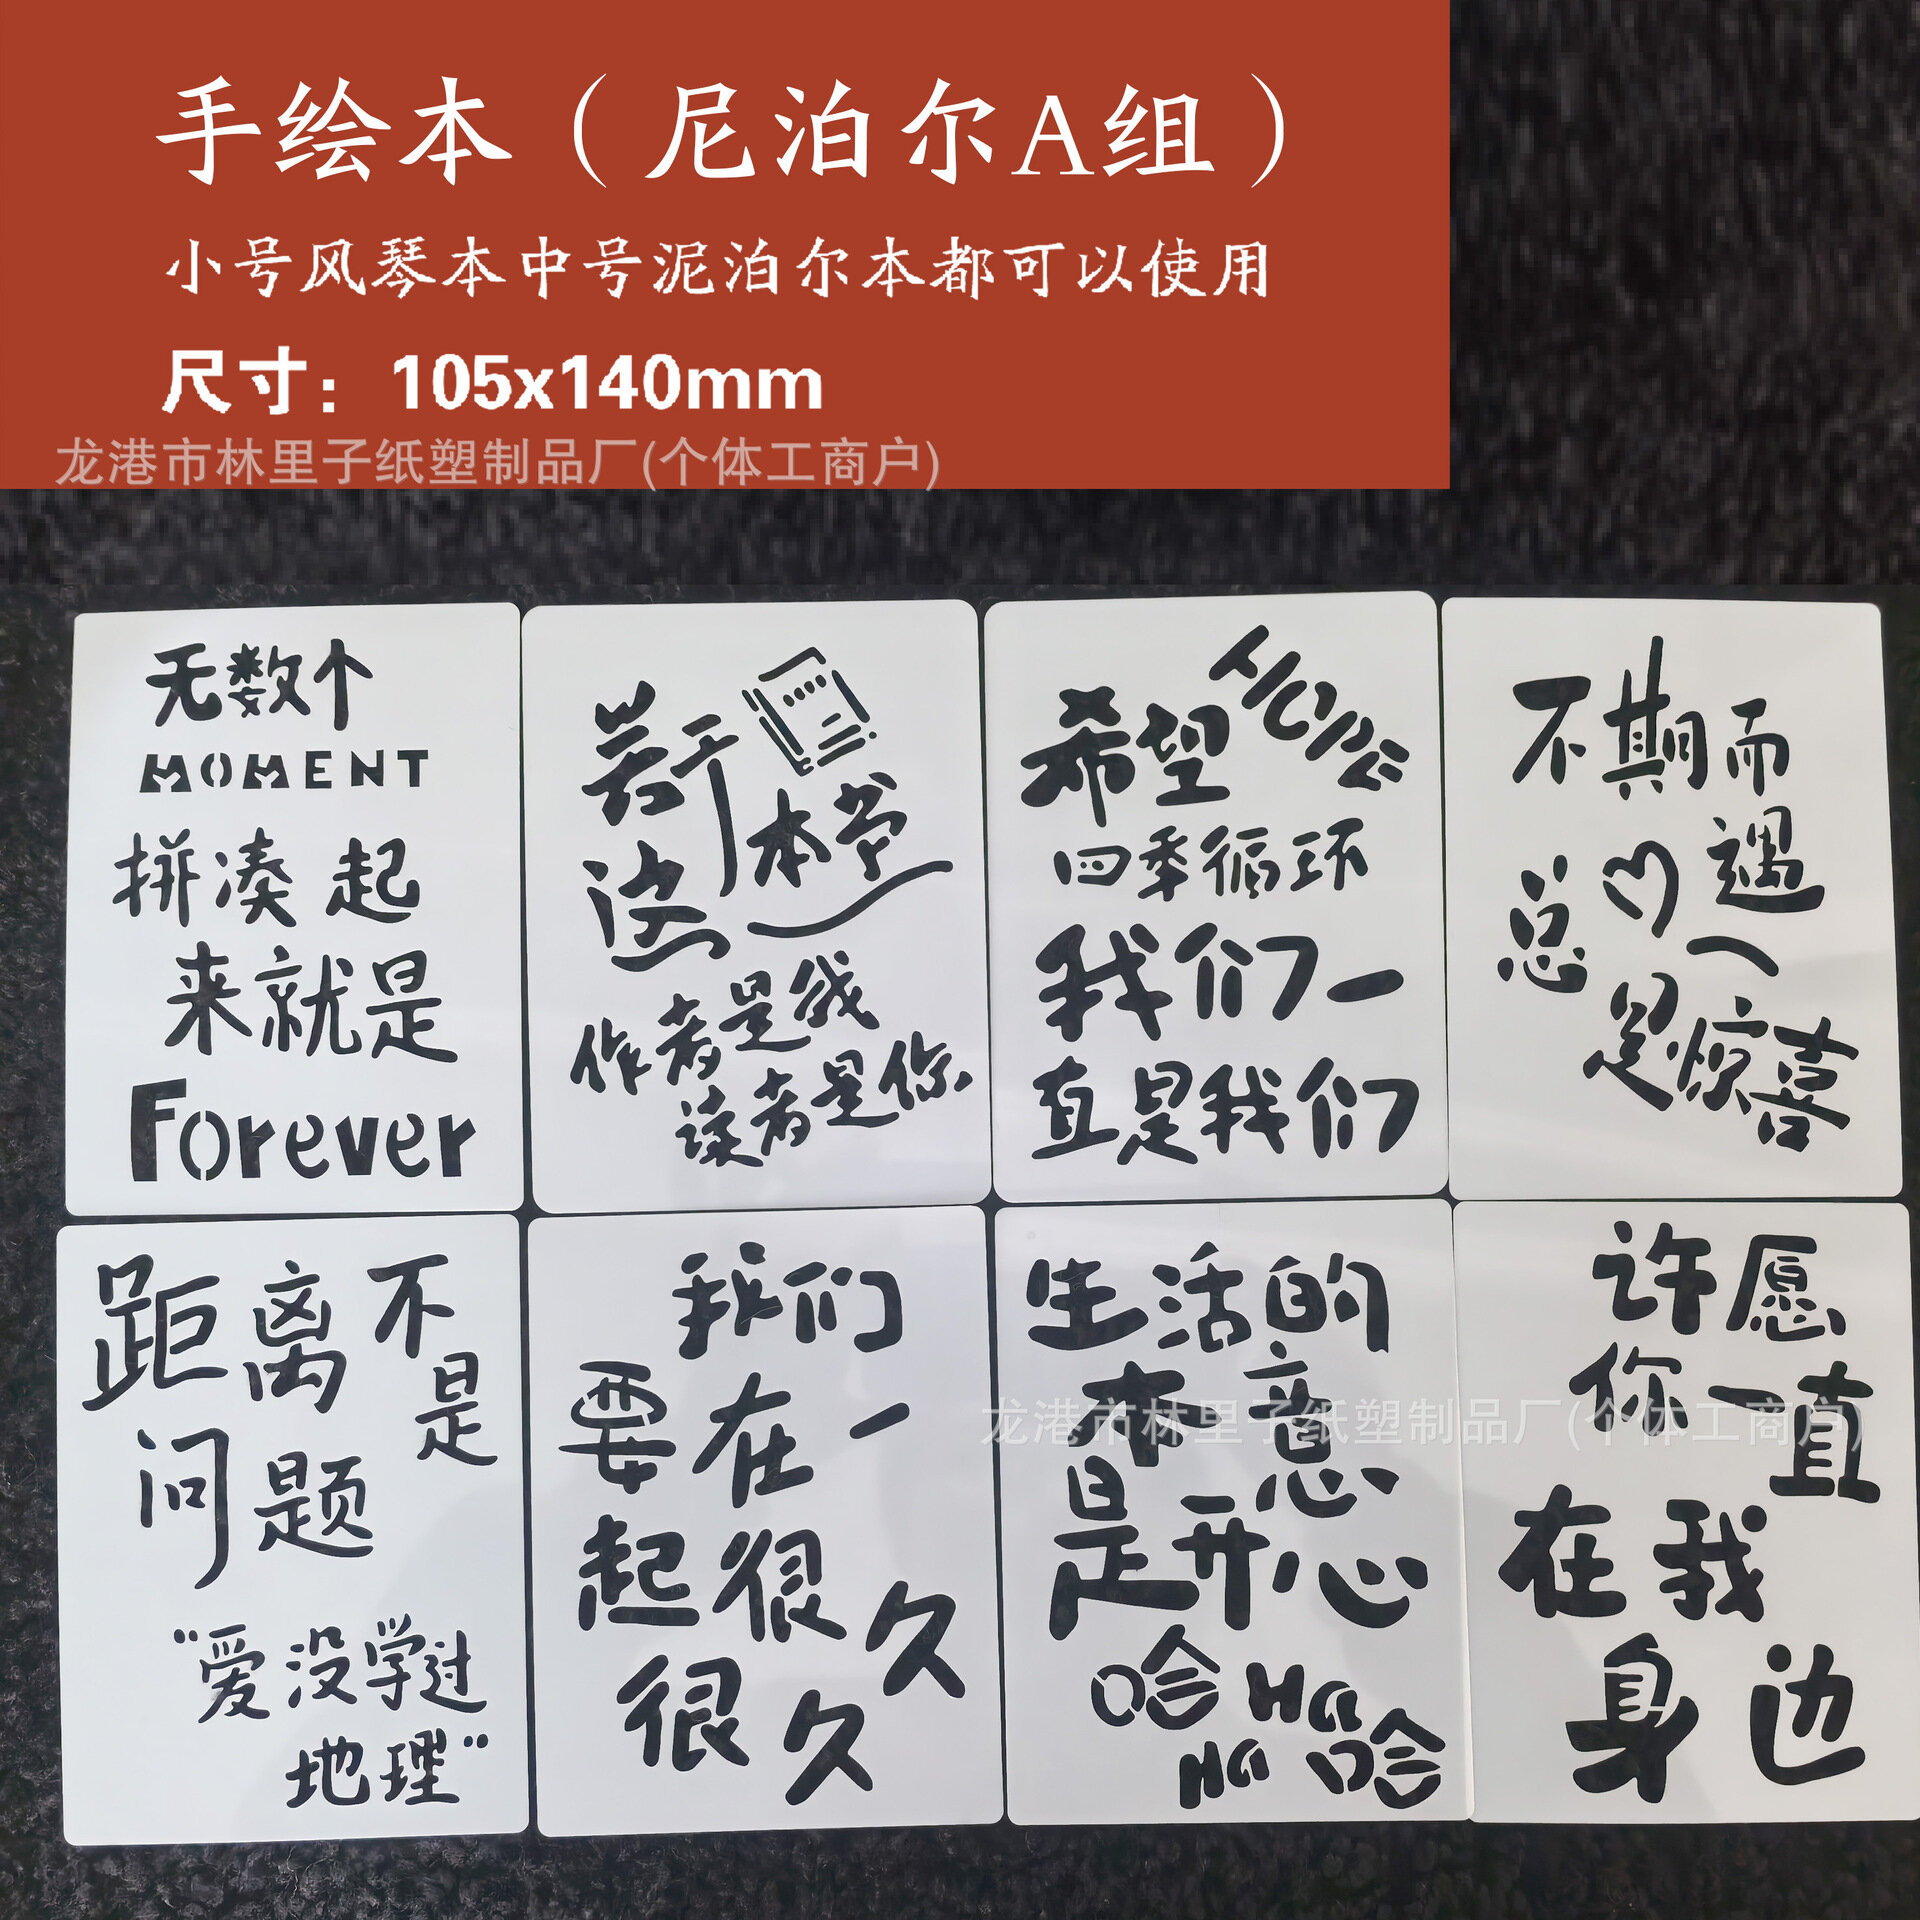 手绘本（尼泊尔A组）
小号风琴本中号泥泊尔本都可以使用
尺寸：105x140mm
龙港市林里子纸塑制品厂(个体工商户)
无数个
MOMENT
拼凑起
来就是
Forever
关于
这本书
作者是我
读者是你
HOPE
希望
四季循环
我们一
直是我们
不期而
遇
总
是惊喜
距离不
是
问题
"爱没学过
地理"
我们
要在一
起很久
很久
生活的
本意
是开心
哈HaHa哈
许愿
你一直
在我
身边
龙港市林里子纸塑制品厂(个体工商户)